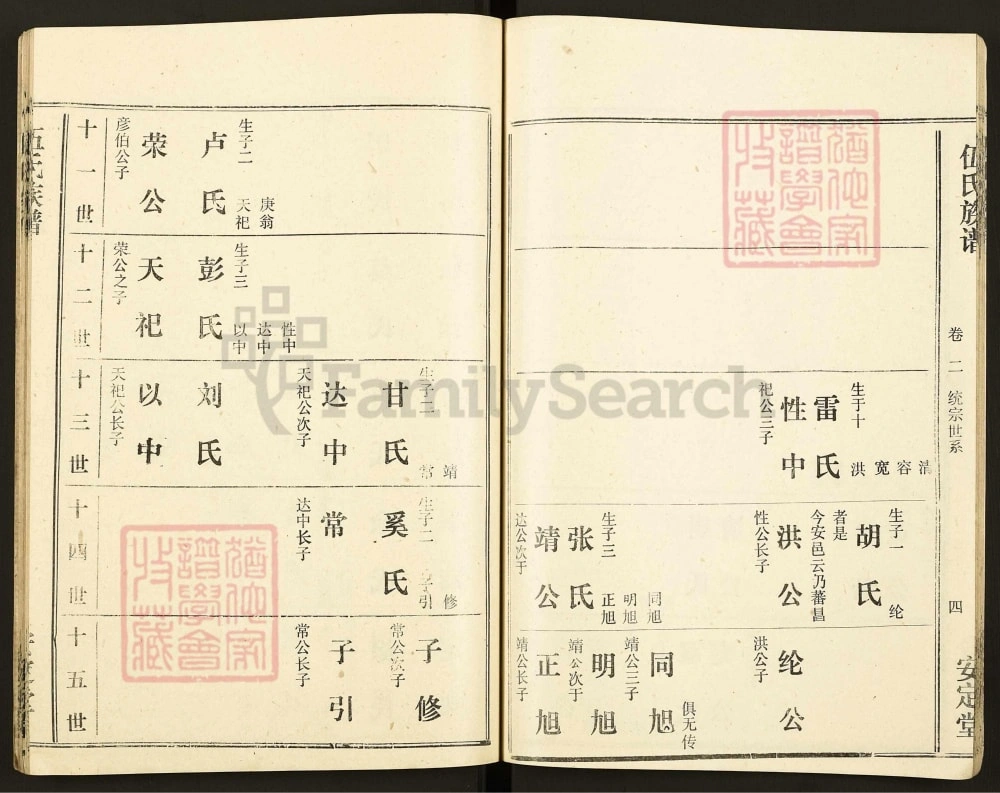 伍氏族谱
卷二 统宗世系
四
安定堂
十一世
十二世
十三世
十四世
十五世
彦伯公子
荣公
卢氏
生子二
天祀
庚翁
荣公之子
天祀
彭氏
生子三
以中
达中
性中
天祀公长子
以中
刘氏
天祀公次子
达中
甘氏
生子二
常
靖
祀公三子
性中
雷氏
生于十
洪
宽
容
清
达中长子
常
奚氏
生子二
子引
修
达公次于
靖公
张氏
生子三
正旭
明旭
同旭
性公长子
洪公
今安邑云乃蕃昌
者是
胡氏
生子一
纶
常公长子
子引
常公次子
子修
靖公长子
正旭
靖公次于
明旭
靖公三子
同旭
俱无传
洪公子
纶公
犹他家谱学会收藏
FamilySearch